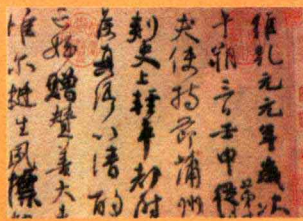 維乾元元年歲次
午朔三日壬申第
夫使持節蒲州
刺史上輕車都尉
侯真卿以清酌
亡姪贈贊善大夫
惟爾挺生夙標